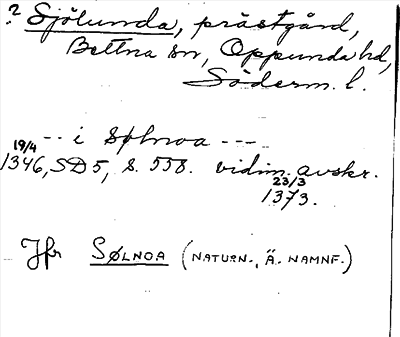 ? Sjölunda, prästgård,
Bettna sn, Oppunda hd,
Söderm. l.
-- i Sølnoa ---
19/4 1346, SD 5, s. 558. vidim. avskr. 23/3 1373.
Jfr SØLNOA (NATURN., Ä. NAMNF.)